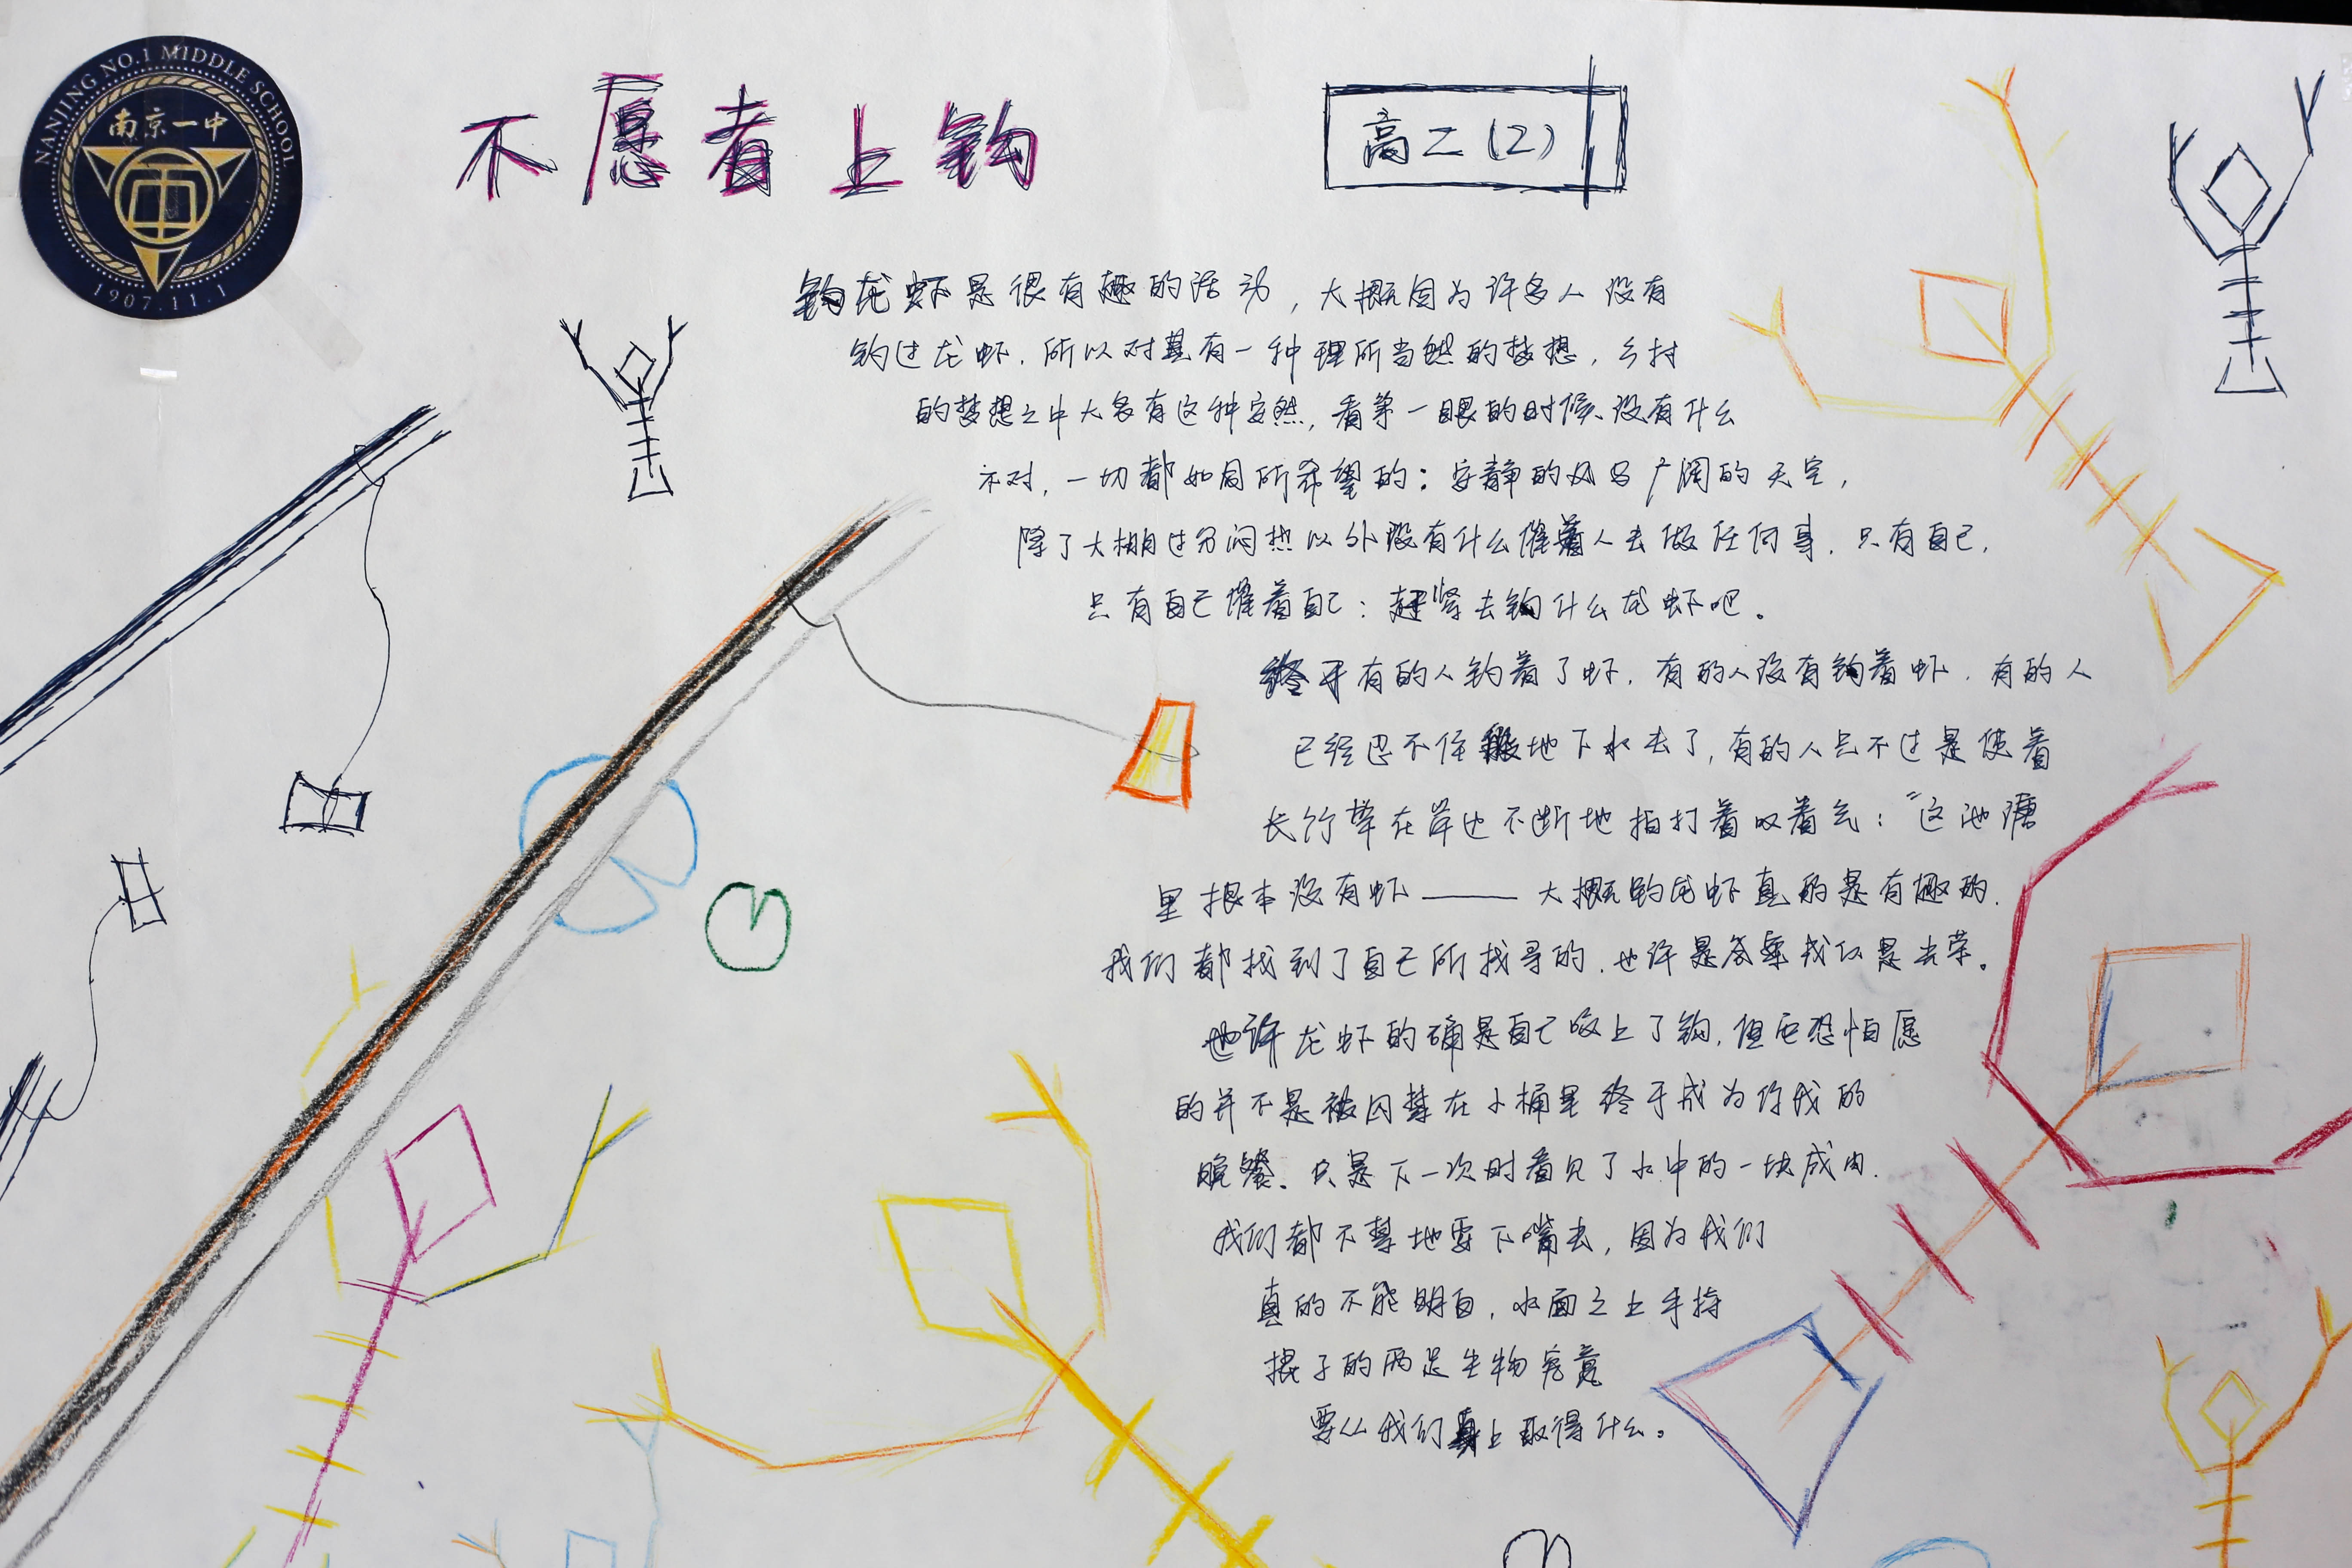 NANJING NO.1 MIDDLE SCHOOL
南京一中
1907.11.1
不愿者上钩
高二(2)
钓龙虾是很有趣的活动，大概因为许多人没有
钓过龙虾，所以对其有一种理所当然的梦想，乡村
的梦想之中大多有这种安然，看第一眼的时候、没有什么
不对，一切都如同所希望的：安静的风与广阔的天空，
除了大棚过分闷热以外没有什么催着人去做任何事，只有自己，
只有自己催着自己：赶紧去钓什么龙虾吧。
终于有的人钓着了虾，有的人没有钓着虾，有的人
已经忍不住般地下水去了，有的人只不过是使着
长竹竿在岸边不断地拍打着叹着气：“这池塘
里根本没有虾——大概钓龙虾真的是有趣的，
我们都找到了自己所找寻的，也许是答案或仅是去荣。
也许龙虾的确是自己咬上了钩，但它恐怕愿
的并不是被囚禁在小桶里终于成为你我的
晚餐、只是下一次时看见了水中的一块咸肉，
我们都不禁地要下嘴去，因为我们
真的不能明白，水面之上手持
棍子的两足生物究竟
要从我们身上取得什么。